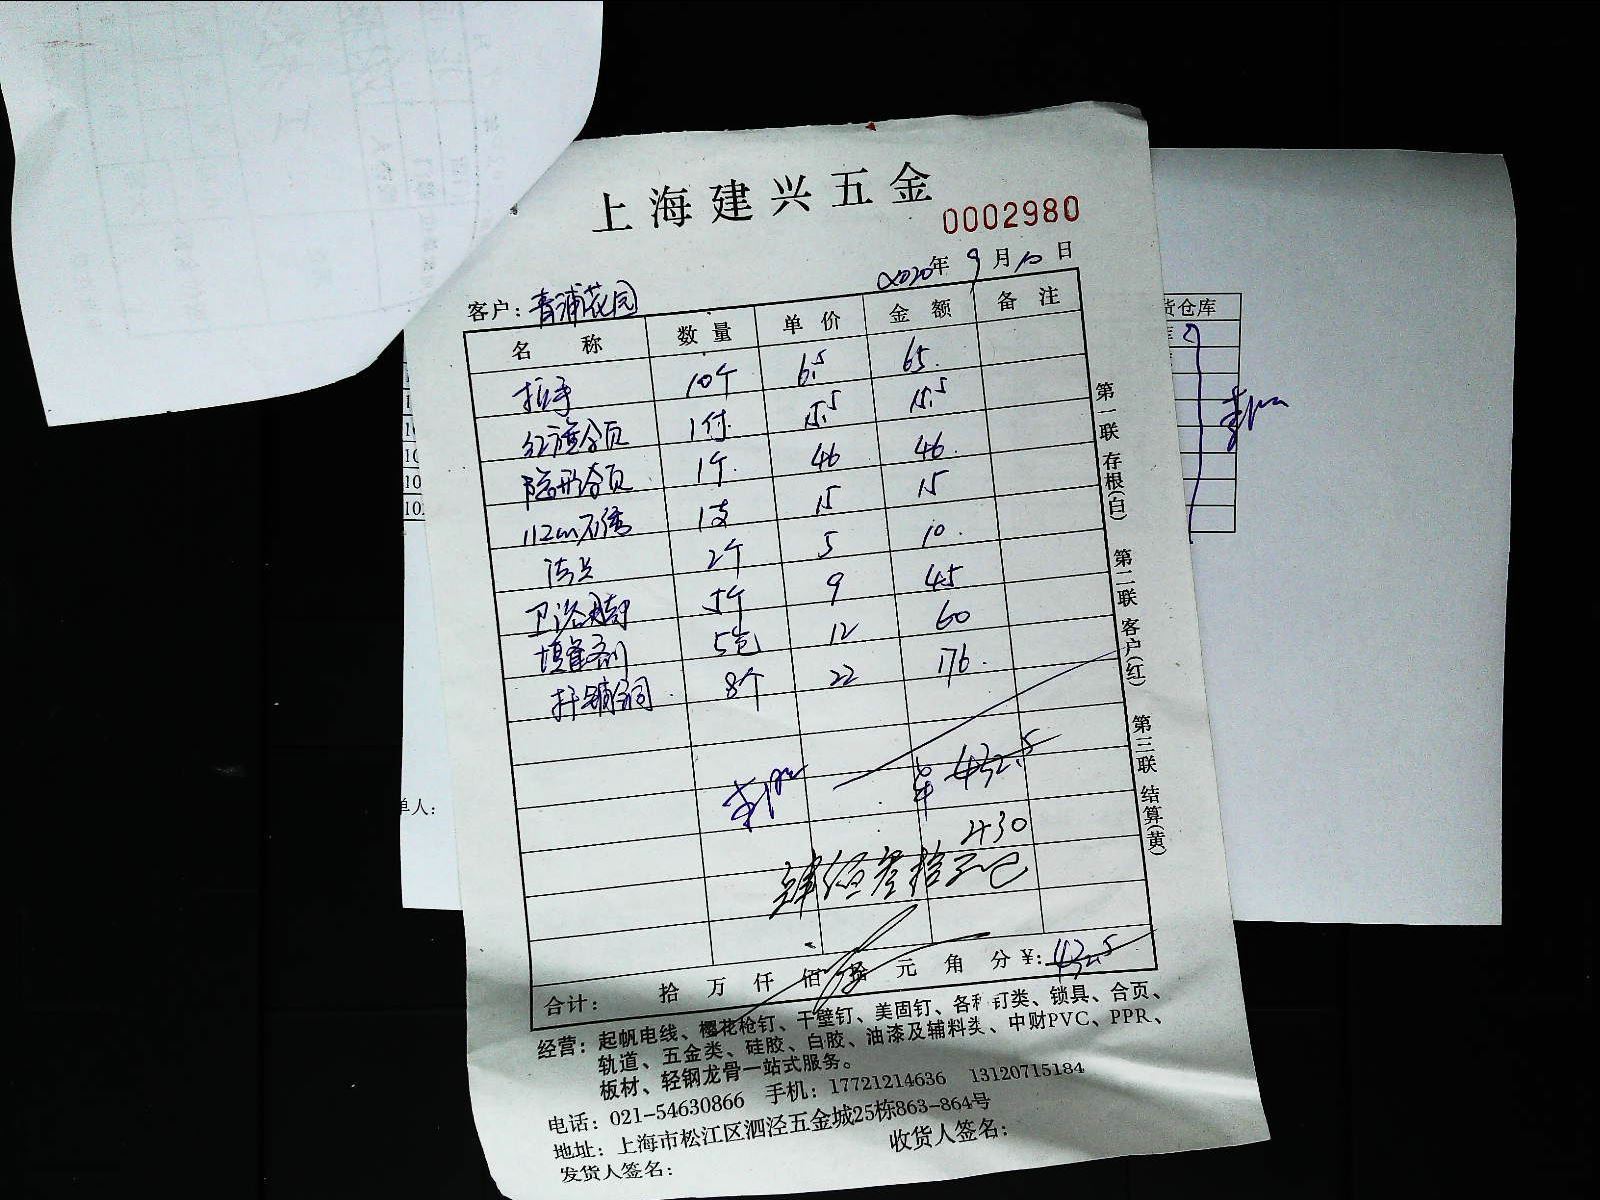 上海建兴五金
0002980
2020年 9月10日
客户：青浦花园
名称 数量 单价 金额 备注
拉手 10个 6.5 65.
红旗合页 1付 15.5 15.5
隐形合页 1个 46 46.
112cm不锈 1支 15 15
法兰 2个 5 10.
卫浴 5个 9 45
填缝剂 5包 12 60
8个 22 176.
432.5
430
肆佰叁拾元已
合计： 拾 万 仟 佰 拾 元 角 分 ¥: 432.5
经营：起帆电线、樱花枪钉、干壁钉、美固钉、各种钉类、锁具、合页、
轨道、五金类、硅胶、白胶、油漆及辅料类、中财PVC、PPR、
板材、轻钢龙骨一站式服务。
电话：021-54630866 手机：17721214636 13120715184
地址：上海市松江区泗泾五金城25栋863-864号
发货人签名： 收货人签名：
第一联 存根(白) 第二联 客户(红) 第三联 结算(黄)
货仓库
单人：